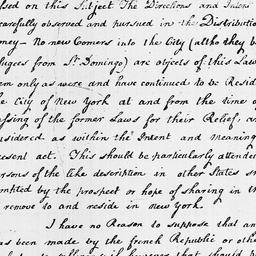 sed on this Subject The Directions and Intent
carefully observed and pursued in the Distribution
ney – No new Comers into the City (altho they b
fugees from St. Domingo) are objects of this Law
em only as were and have continued to be Reside
he City of New York at and from the time o
assing of the former Laws for their Relief, a
nsidered as within the Intent and meaning
resent act. This should be particularly attended
ersons of the like description in other States sh
mpted by the prospect or hope of sharing in th
remove to and reside in new york.
I have no Reason to suppose that an
as been made by the french Republic or othe